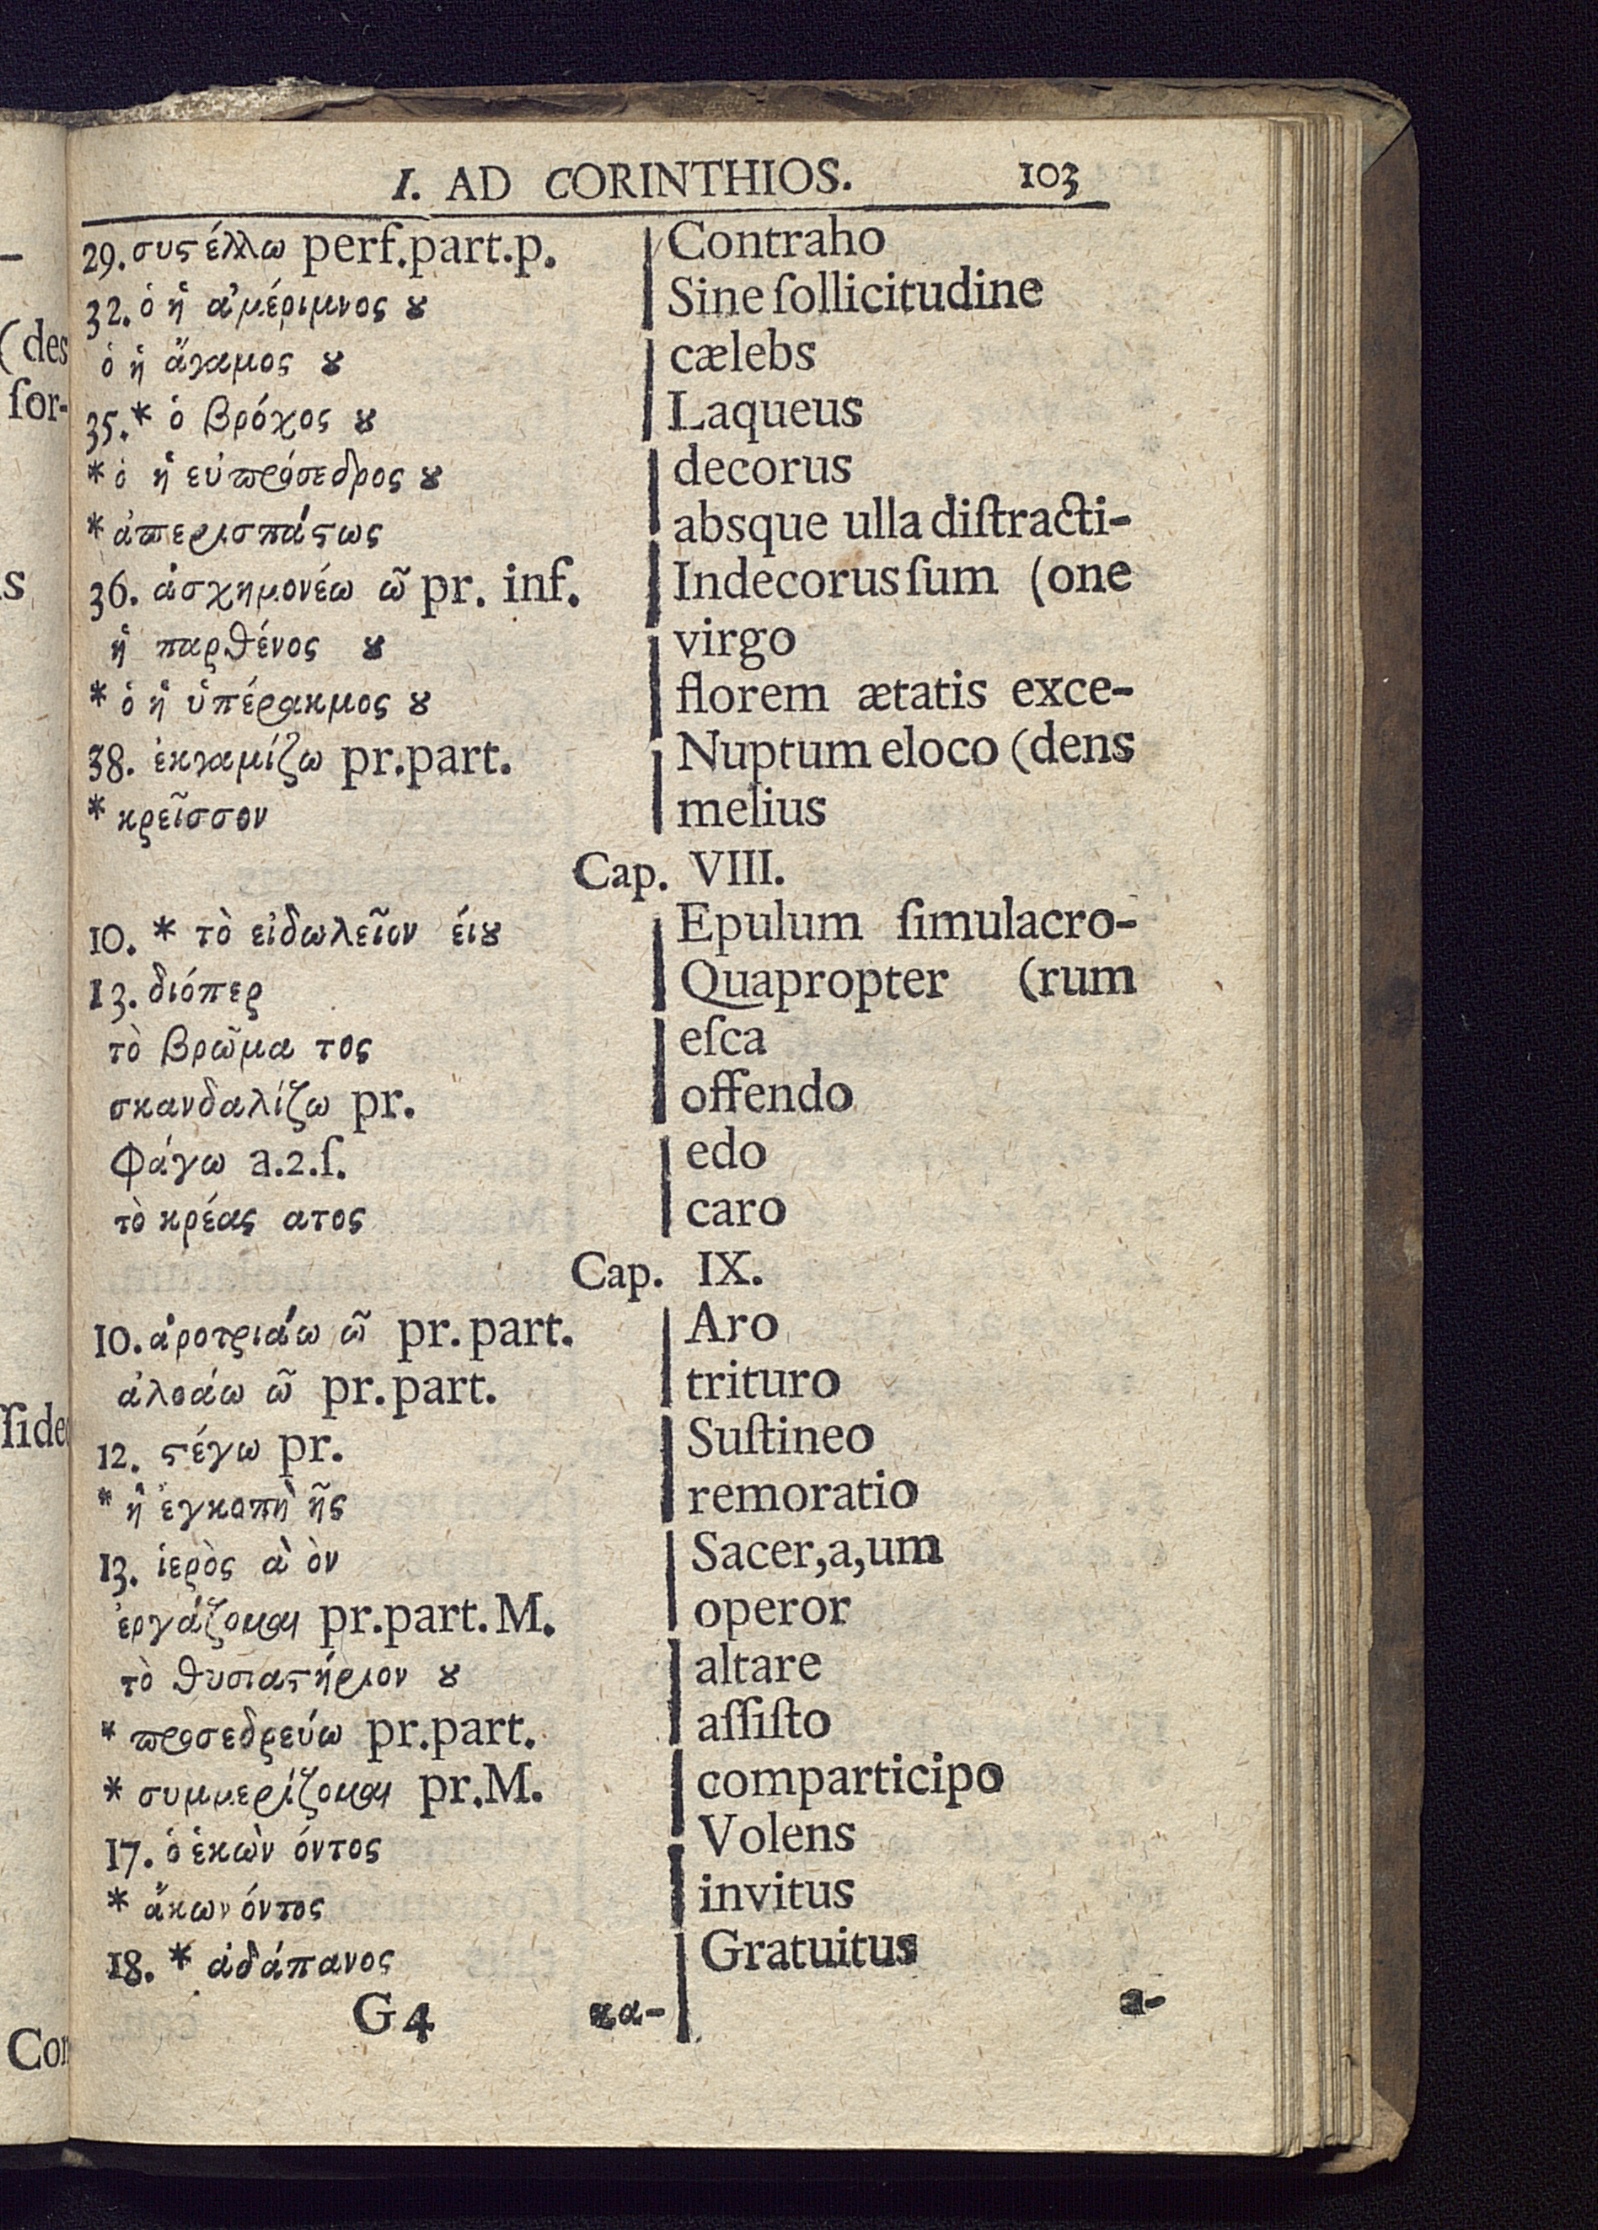 I. AD CORINTHIOS. 103
29. συϛέλλω perf.part.p. Contraho
32. ὁ ἡ ἀμέριμνος ȣ Sine ſollicitudine
ὁ ἡ ἄγαμος ȣ cælebs
35.* ὁ βρόχος ȣ Laqueus
* ὁ ἡ εὐπρόσεδρος ȣ decorus
* ἀπερισπάϛως absque ulla diſtracti-
36. ἀσχημονέω ῶ pr. inf. Indecorus ſum (one
ἡ παρθένος ȣ virgo
* ὁ ἡ ὑπέρακμος ȣ florem ætatis exce-
38. ἐκγαμίζω pr.part. Nuptum eloco (dens
* κρεῖσσον melius
Cap. VIII.
10. * τὸ εἰδωλεῖον είȣ Epulum ſimulacro-
13. διόπερ Quapropter (rum
τὸ βρῶμα τος eſca
σκανδαλίζω pr. offendo
φάγω a.2.ſ. edo
τὸ κρέας ατος caro
Cap. IX.
10. ἀροτριάω ῶ pr. part. Aro
ἀλοάω ῶ pr. part. trituro
12. ϛέγω pr. Suſtineo
* ἡ ἐγκοπὴ ῆς remoratio
13. ἱερὸς ὰ ὸν Sacer,a,um
ἐργάζομαι pr.part. M. operor
τὸ θυσιαϛήριον ȣ altare
* προσεδρεύω pr.part. aſſiſto
* συμμερίζομαι pr.M. comparticipo
17. ὁ ἑκὼν όντος Volens
* ἄκων όντος invitus
18. * ἀδάπανος Gratuitus
G4 κα- a-